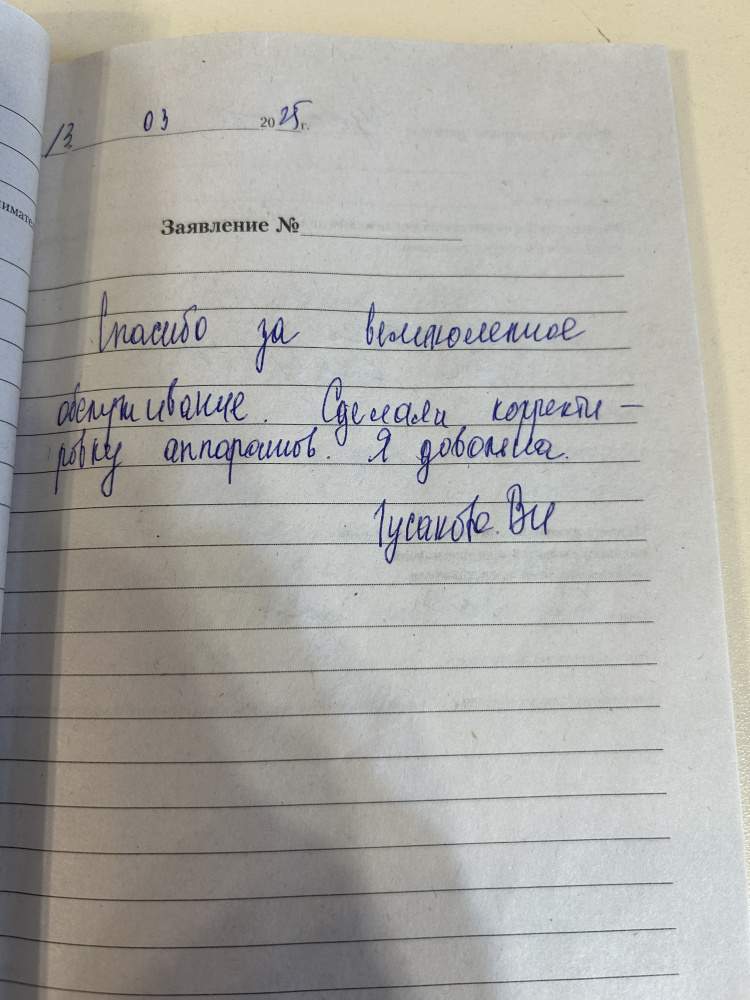 13 03 2025 г.
имате
Заявление №
Спасибо за великолепное
обслуживание. Сделали корректи-
ровку аппаратов. Я довольна.
Гусакова. ВИ